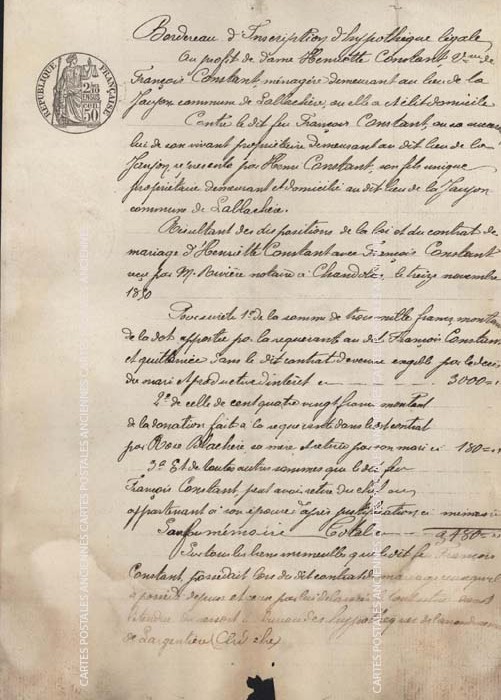 Bordereau d'Inscription d'hypothèque légale
Au profit de dame Henriette Constant Vve de
François Constant, ménagère demeurant au lieu de la
commune de Lablachère, ou elle a élit domicile
Contre le dit feu François Constant, ou sa succes
lui de son vivant propriétaire demeurant au dit lieu de la
représenté par Henri Constant, son fils unique
propriétaire demeurant et domicilié au dit lieu de la
commune de Lablachère.
Résultant des dispositions de la loi et du contrat de
mariage d'Henriette Constant avec François Constant
reçu par Me Rivière notaire à le treize novembre
18
Pour sureté 1° de la somme de trois mille francs montant
de la dot apportée par la requérante au dit François Constant
et quittancée dans le dit contrat devenue exigible par le décès
du mari et productive d'intérêt ci 3000 "
2° de celle de cent quatre vingt francs montant
de la donation fait à la requérante dans le dit contrat
par Rose Blachère sa mère et retirée par son mari ci 180 "
3° Et de toutes autres sommes que le dit feu
François Constant, peut avoir retiré du chef ou
appartenant à son épouse après justification ci mémoire
Sauf mémoire Total
Sur tous les biens immeubles que le dit feu François
Constant, possédait lors du dit contrat de mariage
de Largentière (Ardèche)
RÉPUBLIQUE FRANÇAISE
CARTES POSTALES ANCIENNES CARTES POSTALES ANCIENNES
CARTES POSTALES ANCIENNES